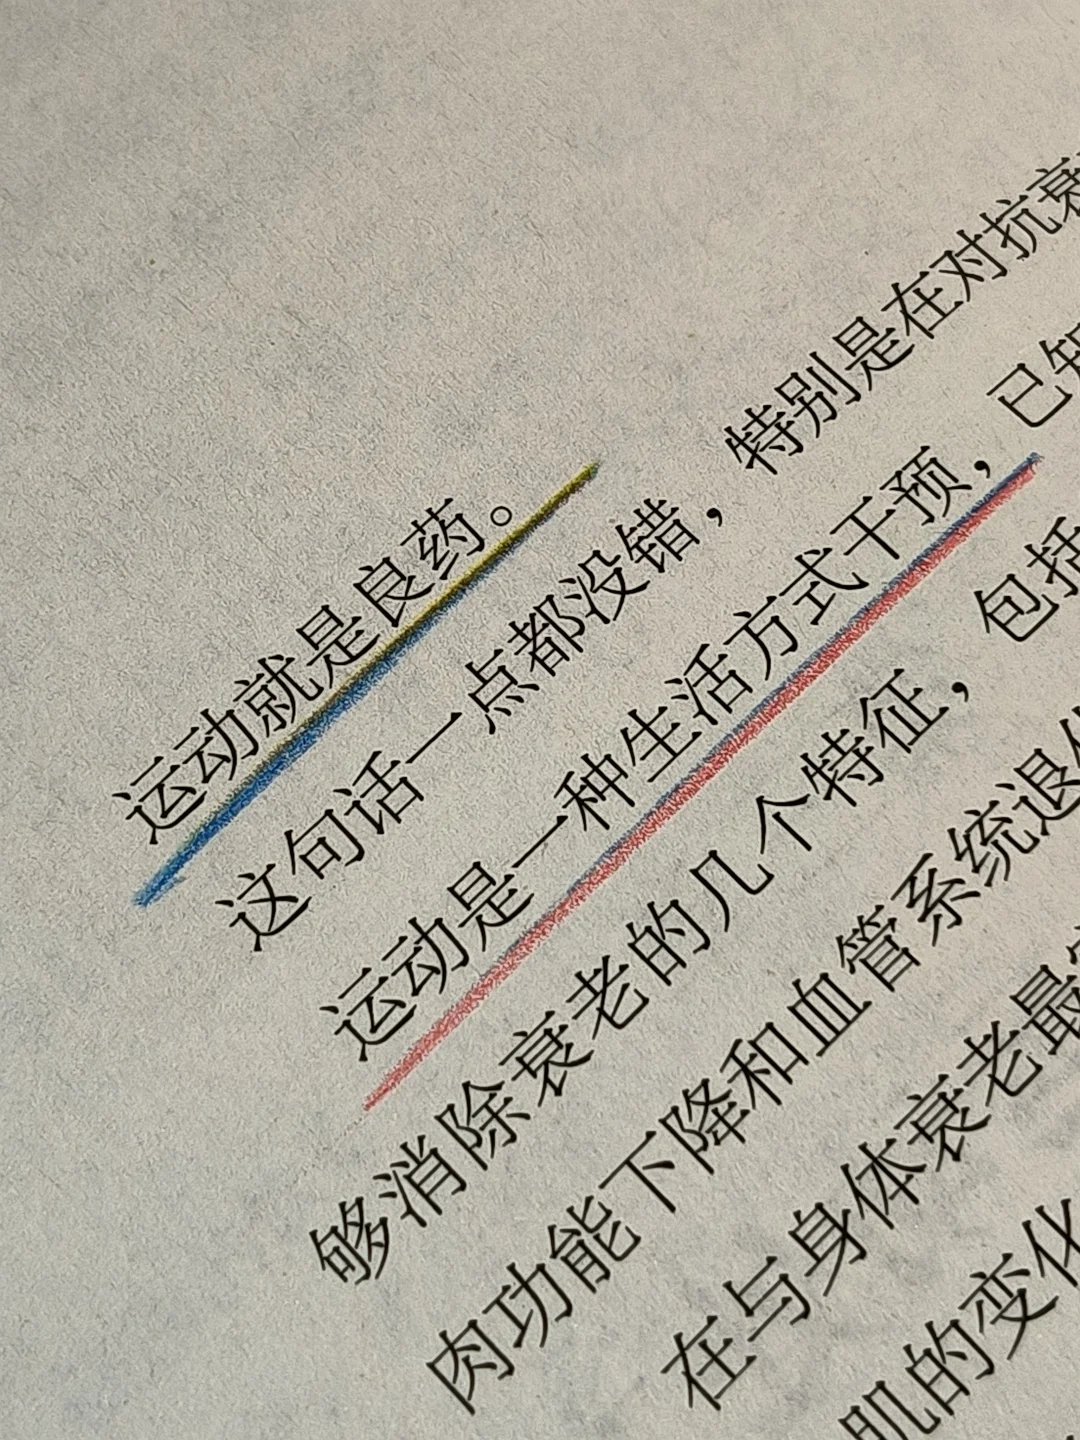 运动就是良药。
这句话一点都没错，特别是在对抗衰
运动是一种生活方式干预，已知
够消除衰老的几个特征，包括
肉功能下降和血管系统退化
在与身体衰老最
肌的变化